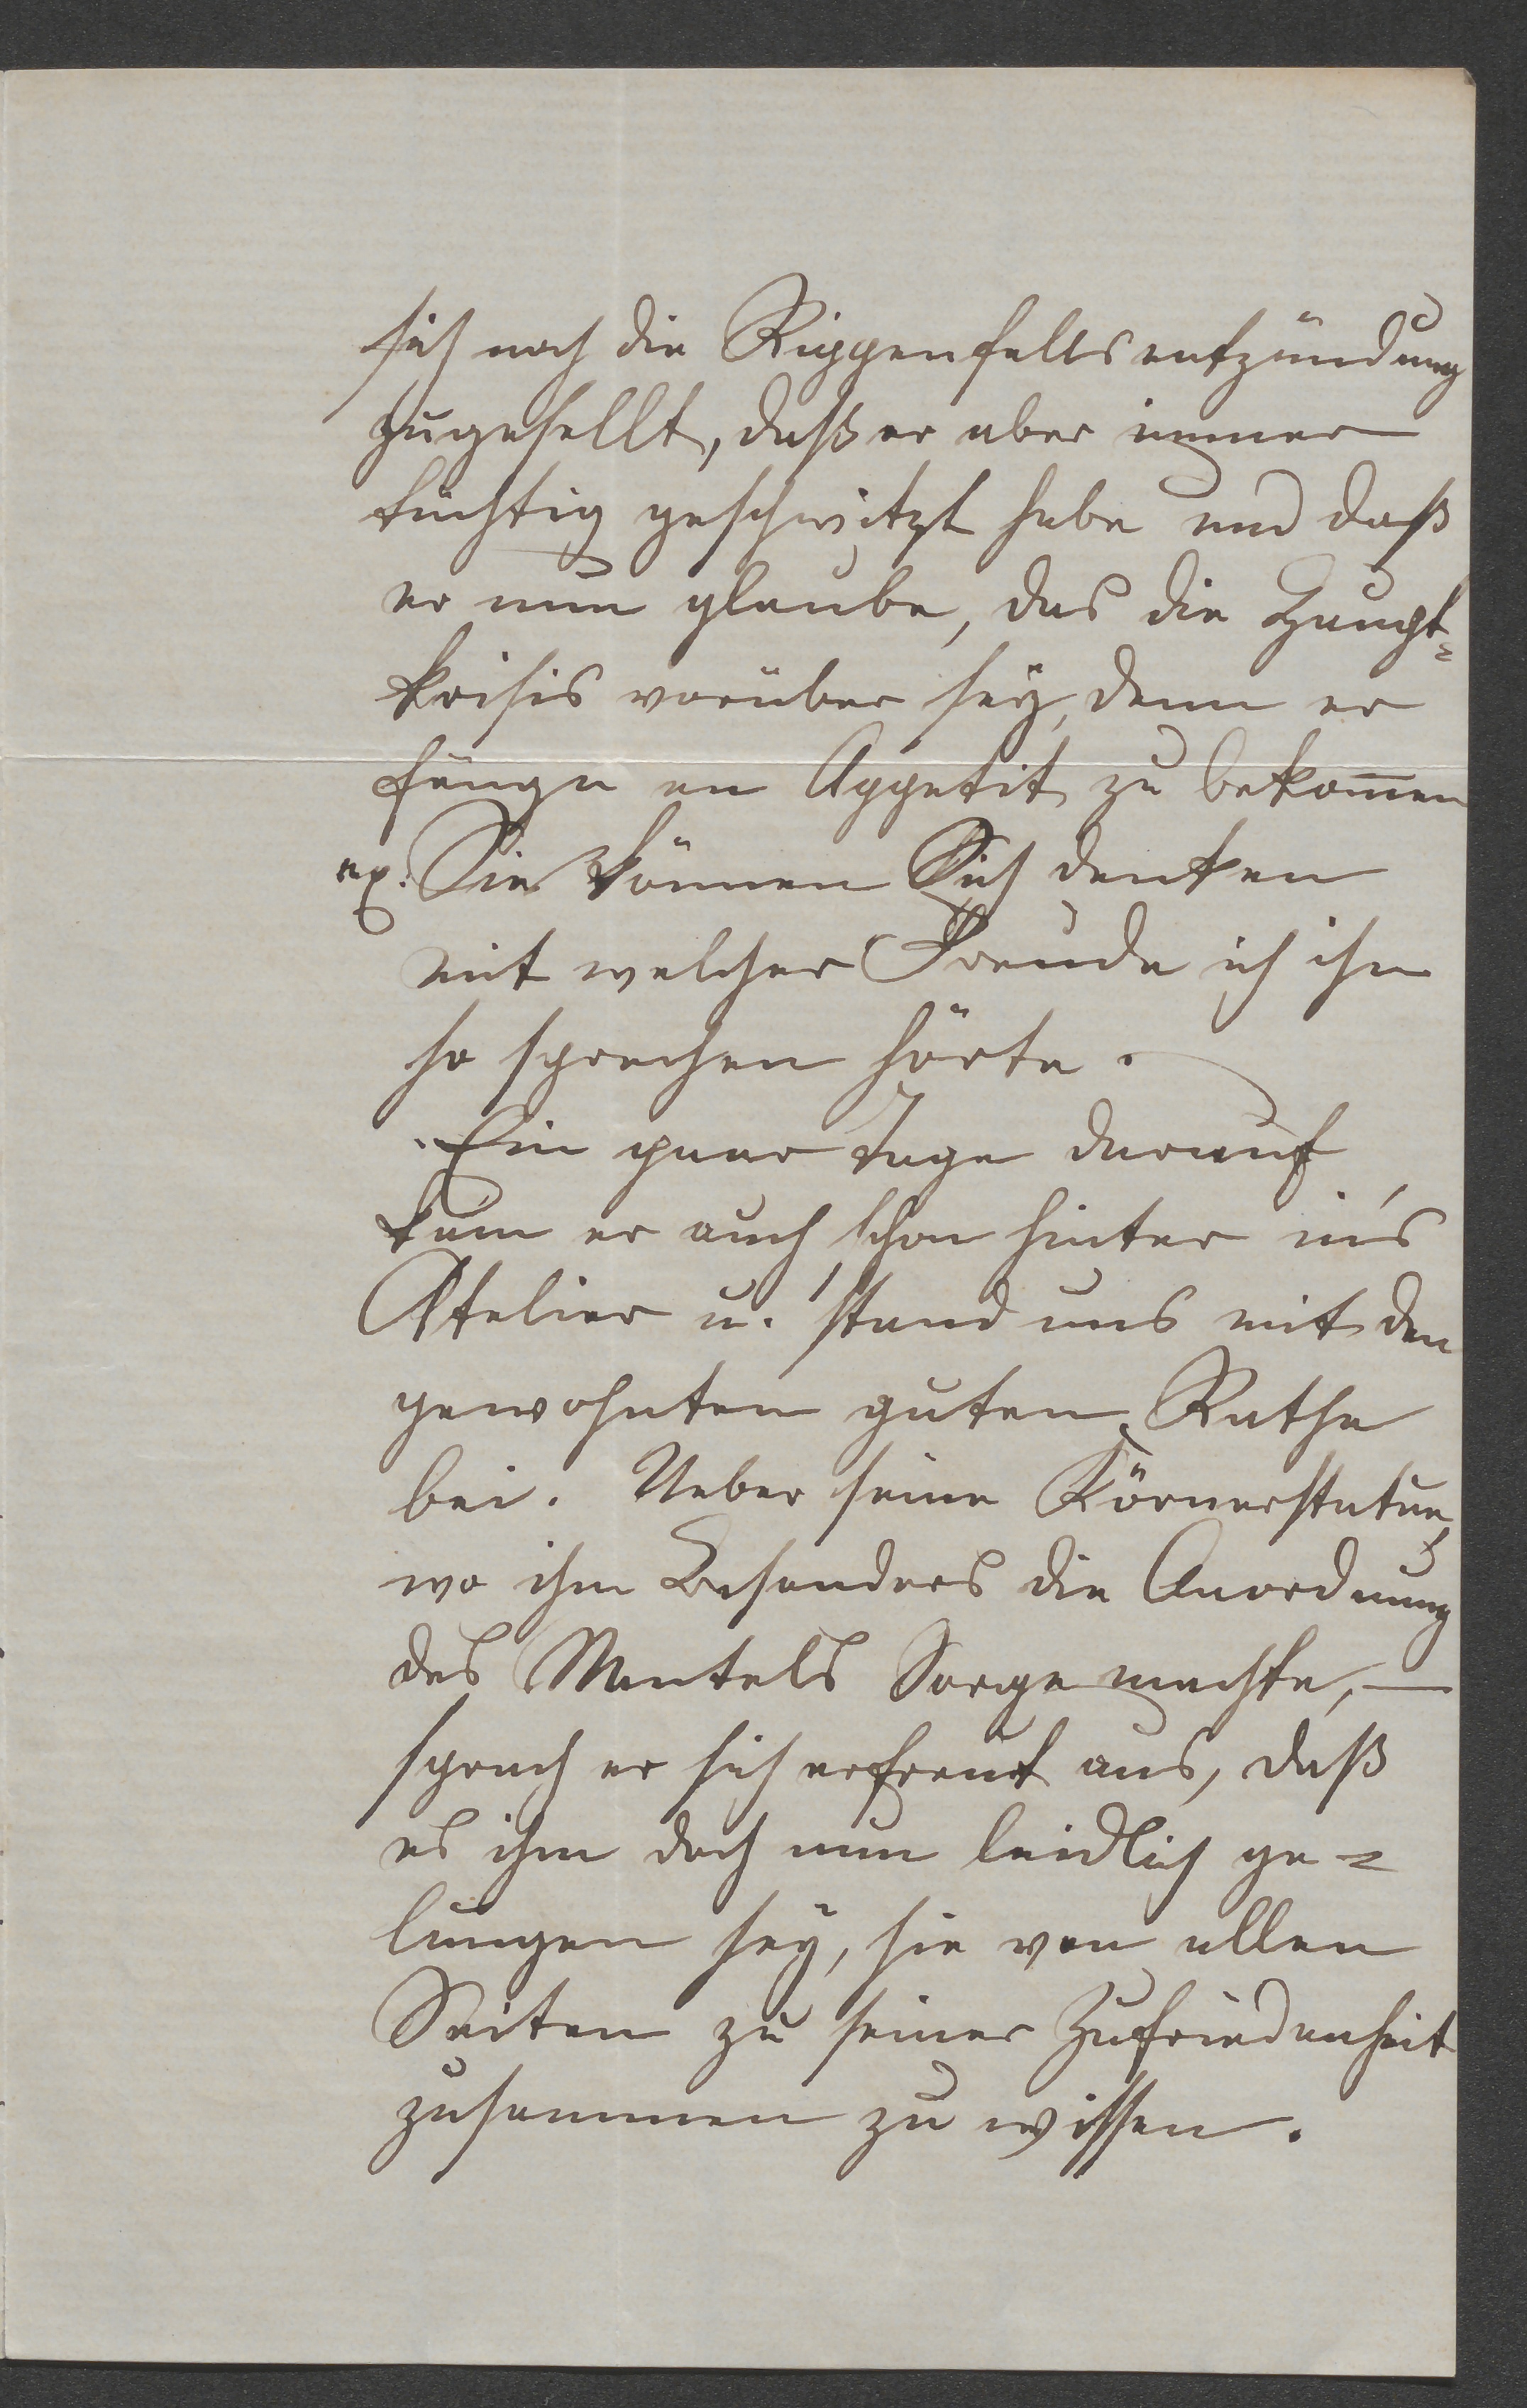 sich noch die Rippenfellsentzündung
zugesellt, daß er aber immer
tüchtig geschwitzt habe und daß
er nun glaube, das die Haupt=
krisis vorüber sey, denn er
fange an Appetit zu bekom̅en
Sie können Sich denken
mit welcher Freude ich ihn
so sprechen hörte.
Ein paar Tage darauf
kam er auch schon hinter in's
Atelier u. stand uns mit den
gewohnten guten Rathe
bei. Ueber seine Körnerstatue,
wo ihm Besonders die Anordnung
des Mantels Sorge machte, —
sprach er sich erfreut aus, daß
es ihm doch nun leidlich ge=
lungen sey, sie von allen
Seiten zu seiner Zufriedenheit
zusammen zu wissen.